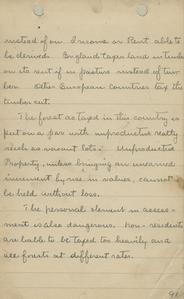 instead of on Income or Rent able to
be derived. England taxes land in timber
on its rent if in pasture instead of tim-
ber. Other European countries tax the
timber cut.
The forest as taxed in this country is
put on a par with unproductive realty
such as vacant lots. Unproductive
Property, unless bringing an unearned
increment by rise in values, cannot
be held without loss.
The personal element in assess-
ment is also dangerous. Non-residents
are liable to be taxed too heavily and
all forests at different rates.